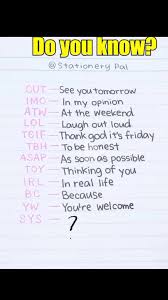 Do you know?
@ Stationery Pal
CUT - See you tomorrow
IMO - In my opinion
ATW - At the weekend
LOL - Laugh out loud
TGIF - Thank god it's friday
TBH - To be honest
ASAP - As soon as possible
TOY - Thinking of you
IRL - In real life
BC - Because
YW - You're welcome
SYS - ?